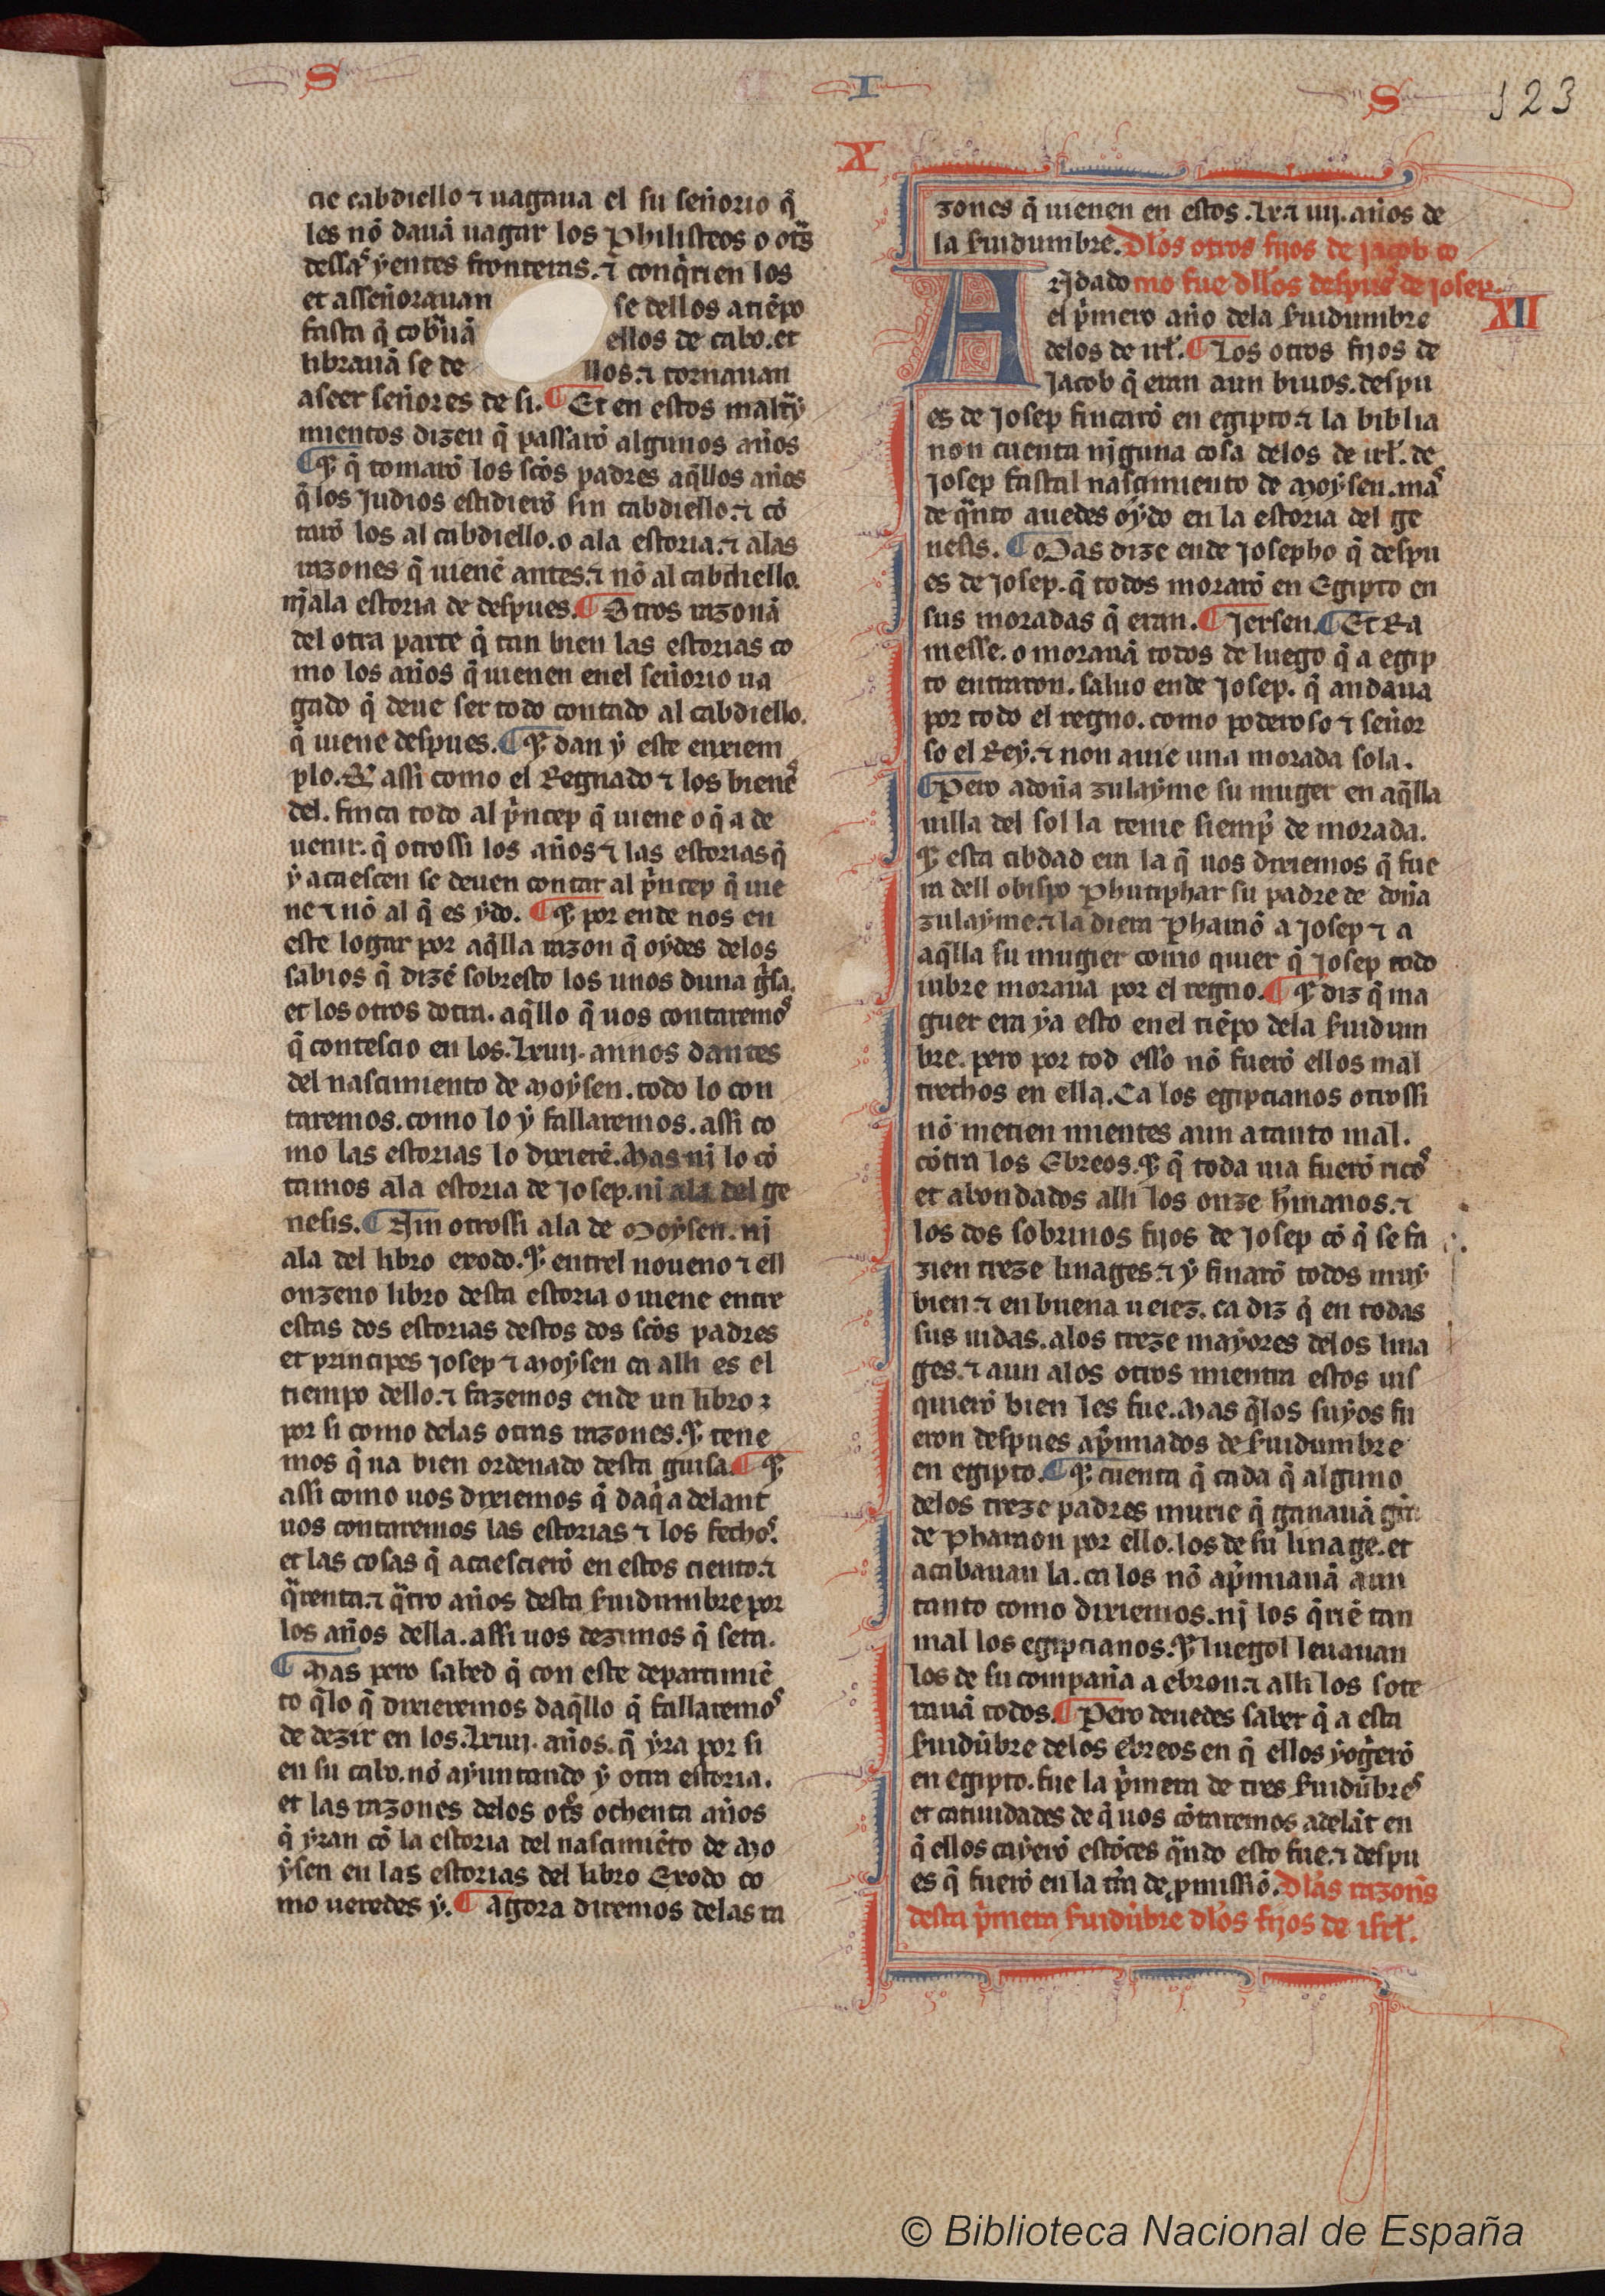 S I S 123
cie cabdiello ⁊ uagaua el su sennorio q̃
les nõ dauã uagar los Philisteos o otͬs
dessaˢ yentes fronteras.⁊ conq̃rien los
et assennorauan se dellos atiẽpo
fasta q̃ cobͬuã ellos de cabo.et
librauã se de llos.⁊ tornauan
aseer sennores de si.¶ Et en estos malͭy
mientos dizen q̃ passarõ algunos annos
¶ ⁊ q̃ tomarõ los sc̃os padres aq̃llos annos
q̃ los Judios estidierõ sin cabdiello.⁊ cõ
tarõ los al cabdiello.o ala estoria.⁊ alas
razones q̃ uienẽ antes.⁊ nõ al cabdiello.
nj ala estoria de despues.¶ Otros razonã
del otra parte q̃ tan bien las estorias co
mo los annos q̃ uienen enel sennorio ua
gado q̃ deue ser todo contado al cabdiello.
q̃ uiene despues.¶ ⁊ dan y este enxiem
plo.Et assi como el Regnado ⁊ los bieneˢ
del. finca todo al pͥncep q̃ uiene o q̃ a de
uenir. q̃ otrossi los annos ⁊ las estorias q̃
y acaescen se deuen contar al pͥncep q̃ uie
ne ⁊ nõ al q̃ es ydo. ¶ ⁊ por ende nos en
este logar por aq̃lla razon q̃ oydes delos
sabios q̃ dizẽ sobresto los unos duna gͥsa.
et los otros dotra. aq̃llo q̃ uos contaremoˢ
q̃ contescio en los.Lxiiij. annos dantes
del nascimiento de Moysen.todo lo con
taremos.como lo y fallaremos.assi co
mo las estorias lo dixierẽ.Mas nj lo cõ
tamos ala estoria de Josep.nj ala del ge
nesis.¶ Nin otrossi ala de Moysen.nj
ala del libro exodo.⁊ entrel noueno ⁊ ell
onzeno libro desta estoria o uiene entre
estas dos estorias destos dos sc̃os padres
et principes Josep ⁊ Moysen ca alli es el
tiempo dello.⁊ fazemos ende un libro
por si como delas otras razones.⁊ tene
mos q̃ ua bien ordenado desta guisa.¶ ⁊
assi como uos dixiemos q̃ daq̃ adelant
uos contaremos las estorias ⁊ los fechoˢ.
et las cosas q̃ acaescierõ en estos ciento.⁊
qͣrenta.⁊ qͣtro annos desta seruidumbre por
los annos della.assi uos dezimos q̃ sera.
¶ Mas pero sabed q̃ con este departimiẽ
to q̃lo q̃ dixieremos daq̃llo q̃ fallaremoˢ
de dezir en los.Lxiiij. annos. q̃ yra por si
en su cabo.nõ ayuntando y otra estoria.
et las razones delos otͬs ochenta annos
q̃ yran cõ la estoria del nascimiẽto de Mo
ysen en las estorias del libro Exodo co
mo ueredes y.¶ Agora diremos delas ra
X
zones q̃ uienen en estos .Lx.⁊ iiij. annos de
la seruidumbre. Dlos otros fijos de jacob co
Andado mo fue dllos despues de josep. XII
el pͥmero anno dela seruidumbre
delos de irl̃.¶ Los otros fijos de
Jacob q̃ eran aun biuos.despu
es de Josep fincarõ en egipto.⁊ la biblia
non cuenta njguna cosa delos de irl̃. de
Josep fastal nascimiento de Moysen.maˢ
de qͣnto auedes oydo en la estoria del ge
nesis. ¶ Mas dize ende Josepho q̃ despu
es de Josep. q̃ todos morarõ en Egipto en
sus moradas q̃ eran.¶ Jersen.¶ Et Ra
messe. o morauã todos de luego q̃ a egip
to entraron. saluo ende Josep. q̃ andaua
por todo el regno. como poderoso ⁊ sennor
so el Rey.⁊ non auie una morada sola.
¶ Pero adonna zulayme su muger en aq̃lla
uilla del sol la tenie siempͬ de morada.
⁊ esta cibdad era la q̃ uos dixiemos q̃ fue
ra dell obispo Phutiphar su padre de donna
zulayme.⁊ la diera Pharaõ a Josep ⁊ a
aq̃lla su mugier como quier q̃ Josep todo
uibre moraua por el regno.¶ ⁊ diz q̃ ma
guer era ya esto enel tiẽpo dela seruidum
bre. pero por tod esso nõ fuerõ ellos mal
trechos en ella.Ca los egipcianos otrossi
nõ metien mientes aun atanto mal.
cõtra los Ebreos.⁊ q̃ toda uia fuerõ ricoˢ
et abondados alli los onze hͬmanos.⁊
los dos sobrinos fijos de Josep cõ q̃ se fa
zien treze linages.⁊ y finarõ todos muy
bien.⁊ en buena ueiez. ca diz q̃ en todas
sus uidas.alos treze mayores delos lina
ges.⁊ aun alos otros mientra estos uis
quierõ bien les fue.Mas q̃los suyos fu
eron despues apͬmiados de seruidumbre
en egipto.¶ ⁊ cuenta q̃ cada q̃ alguno
delos treze padres murie q̃ ganauã gͬa
de Pharaon por ello.los de su linage.et
acabauan la.ca los nõ apͬmiauã aun
tanto como dixiemos.nj los q̃riẽ tan
mal los egipcianos.⁊ luego l leuauan
los de su companna a ebron.⁊ alli los sote
rauã todos.¶ Pero deuedes saber q̃ a esta
seruidũbre delos ebreos en q̃ ellos yogͥerõ
en egipto.fue la pͥmera de tres seruidũbreˢ
et catiuidades de q̃ uos cõtaremos adelãt en
q̃ ellos cayerõ estõces qͣndo esto fue.⁊ despu
es q̃ fuerõ en la tͬra de ꝓmissiõ. Dlas razones
desta pͥmera seruidũbre dlos fijos de isrl̃.
© Biblioteca Nacional de España